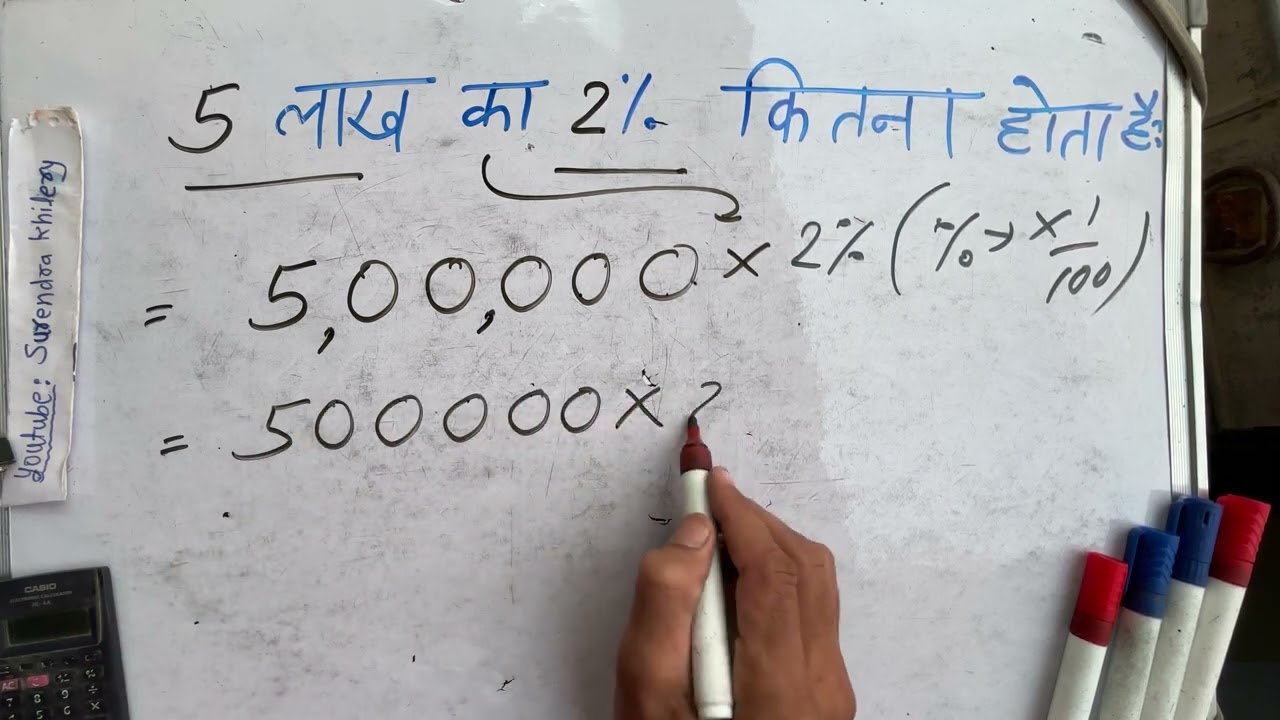 5 लाख का 2% कितना होता है?
= 5,00,000 × 2% (% → × 1/100)
= 500000 × 2
Youtube: Surendra Khilery
CASIO
AC
C